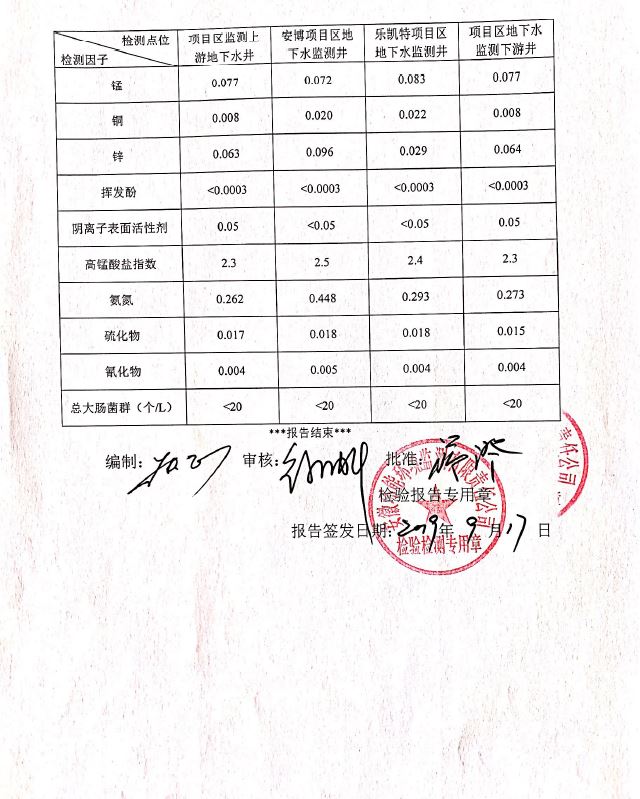 检测点位 项目区监测上 安博项目区地 乐凯特项目区 项目区地下水
检测因子 游地下水井 下水监测井 地下水监测井 监测下游井
锰 0.077 0.072 0.083 0.077
铜 0.008 0.020 0.022 0.008
锌 0.063 0.096 0.029 0.064
挥发酚 <0.0003 <0.0003 <0.0003 <0.0003
阴离子表面活性剂 0.05 <0.05 <0.05 0.05
高锰酸盐指数 2.3 2.5 2.4 2.3
氨氮 0.262 0.448 0.293 0.273
硫化物 0.017 0.018 0.018 0.015
氰化物 0.004 0.005 0.004 0.004
总大肠菌群（个/L） <20 <20 <20 <20
***报告结束***
编制： 审核： 批准：
检验报告专用章
报告签发日期：2019年9月17日
检验检测专用章
责任公司